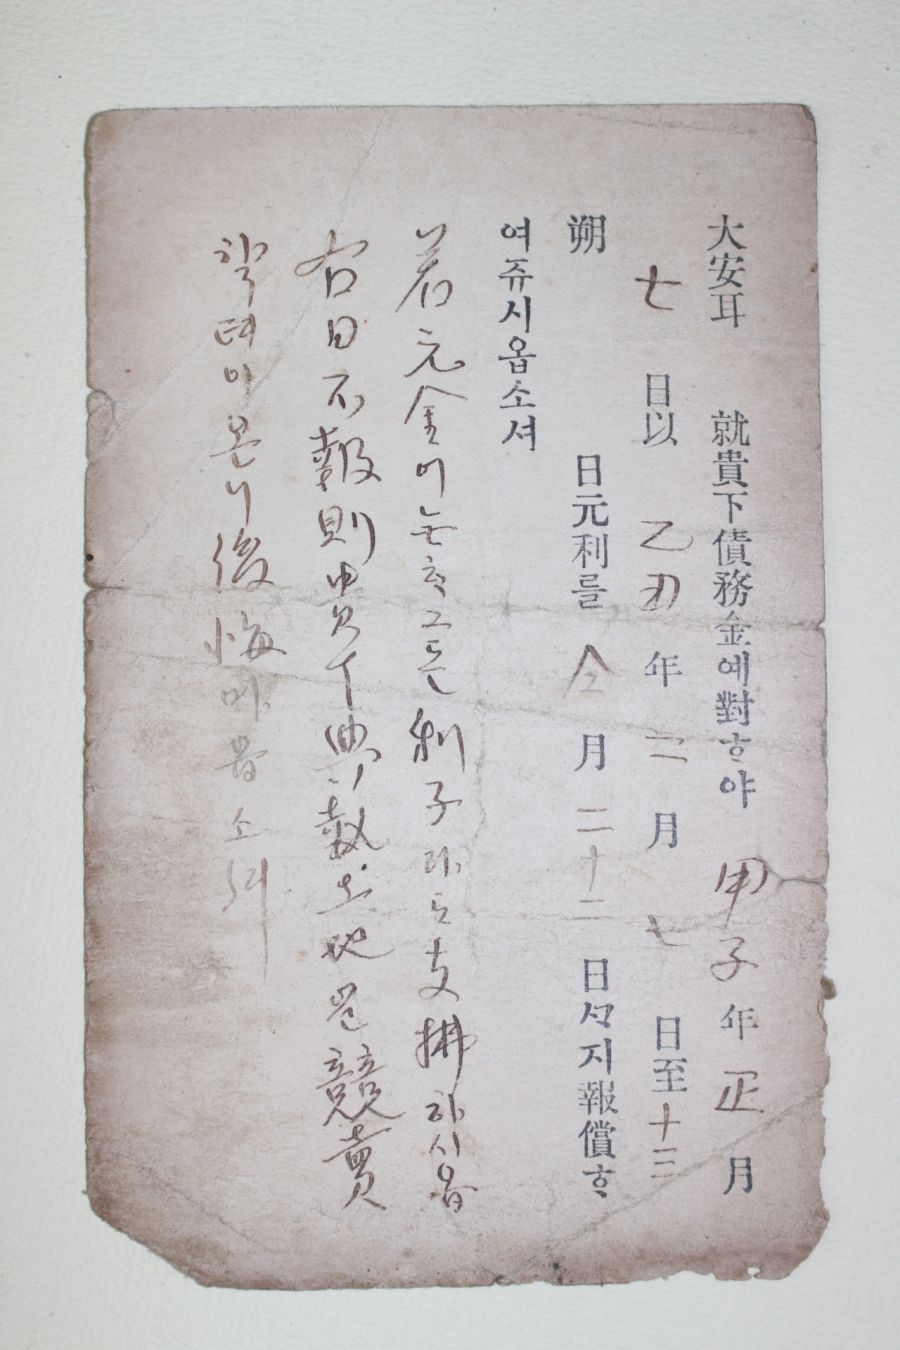 大安耳 就貴下債務金예對ᄒᆞ야 甲子年正月
七日以 乙丑年二月七日至十三
朔 日元利를 今月二十二日ᄭᆞ지報償ᄒᆞ
여쥬시옵소셔
若元金이 利子라도支拂하시옵
右日不報則 典執土地을競賣
할터이온니後悔마옵소셔